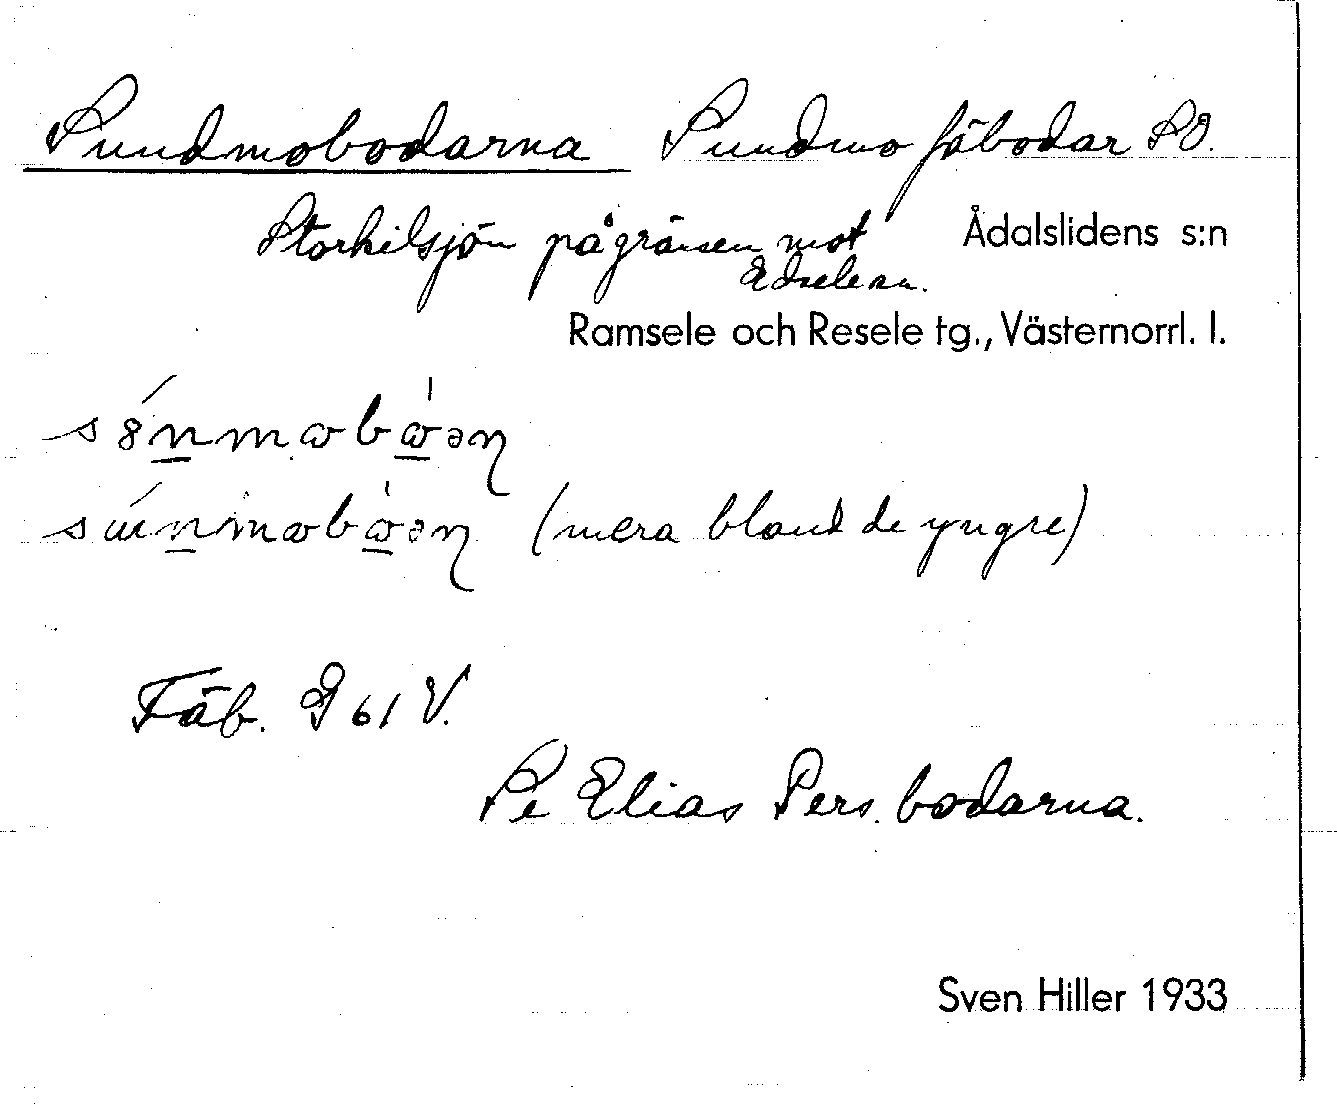 Sundmobodarna Sundmo fäbodar SO.
Storkilsjön på gränsen mot Ådalslidens s:n
Edsele sn.
Ramsele och Resele tg., Västernorrl. l.
(mera bland de yngre)
Fäb. G 61 V.
Se Elias Pers bodarna.
Sven Hiller 1933